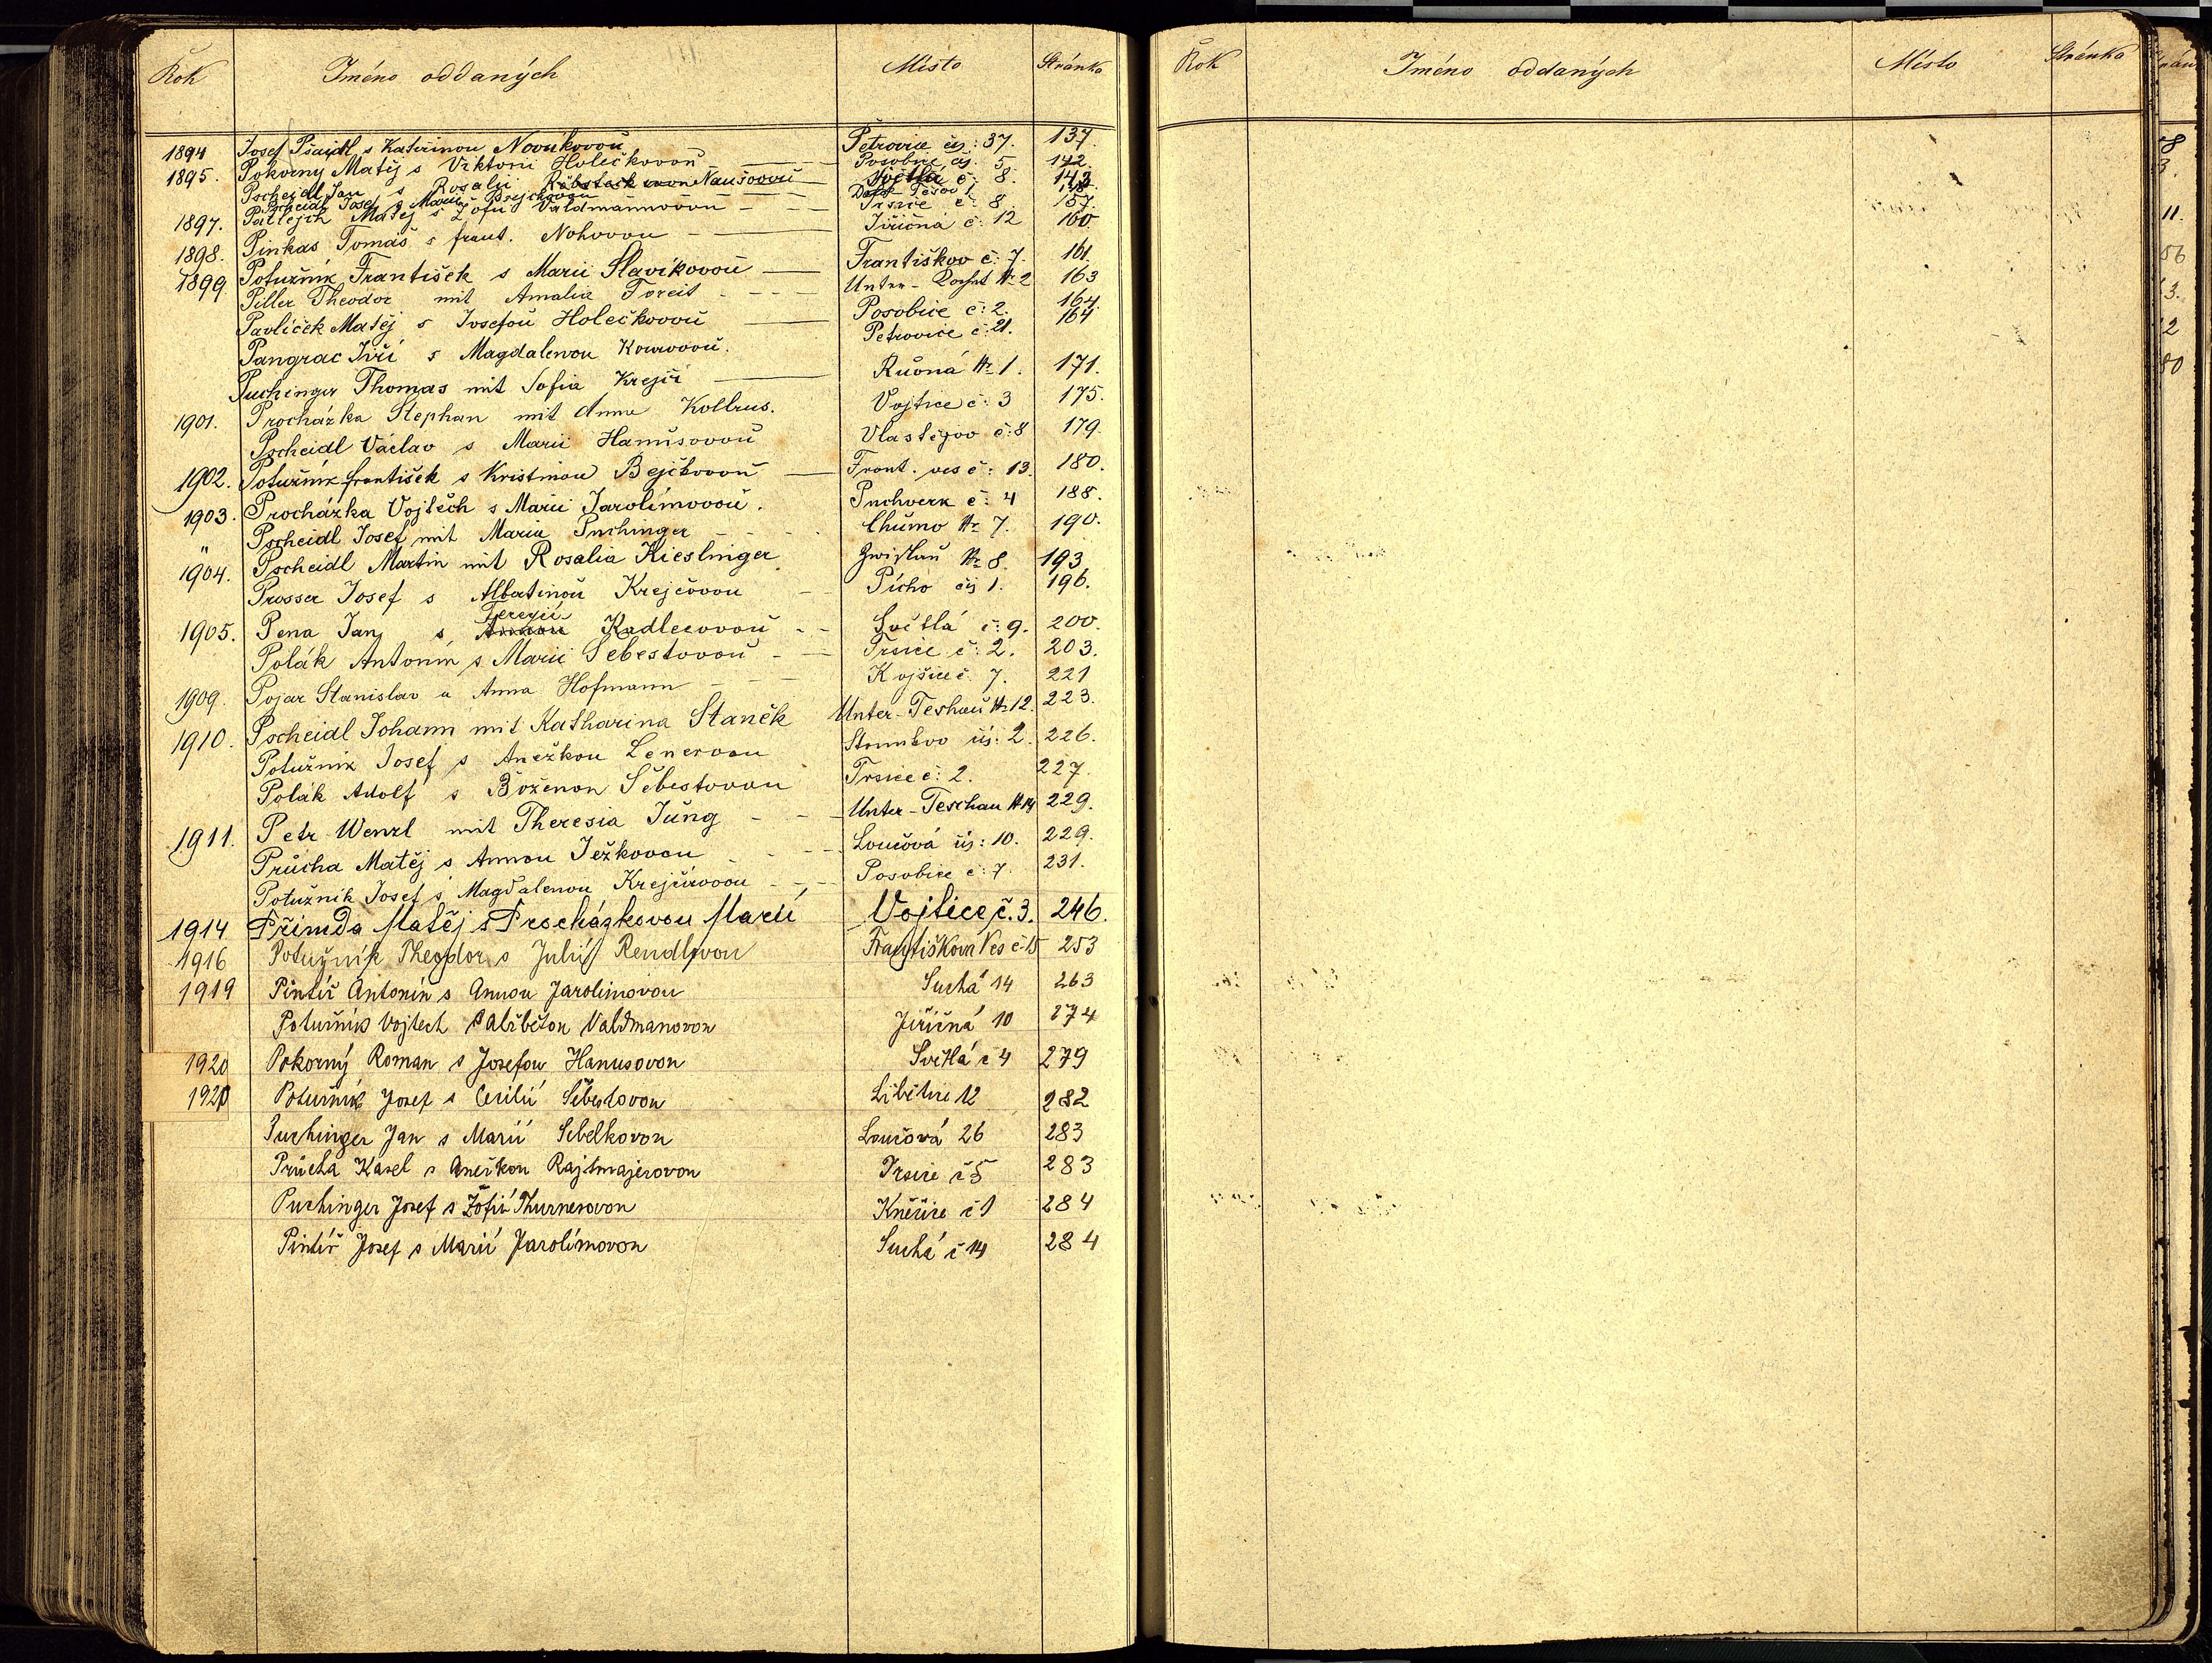 Rok Jméno oddaných Místo Stránka
1894 Josef Pšaidl s Kateřinou Novákovou Petrovice čís: 37. 137.
1895. Pokorný Matěj s Viktorií Holečkovou Posobice čís. 5 142.
Pscheidl Jan s Rosalií Naušovou Světlá č: 8. 143
Pscheidl Josef s Marií Prejchovou Těšov 1
1897. Patlejch Matěj s Žofií Valdmannovou Trsice č: 8 157.
1898. Pinkas Tomáš s frant. Nohovou Jiřičná č: 12 160
1899 Potužník František s Marií Slavíkovou Františkov č: 7. 161.
Piller Theodor mit Amalia Toreit Unter- № 2 163
Pavlíček Matěj s Josefou Holečkovou Posobice č: 2. 164.
Pangrac Jiří s Magdalenou Petrovice č: 21. 164
Puchinger Thomas mit Sofia Krejčí Ručná № 1. 171.
1901. Procházka Stephan mit Anna Kollrus. Vojtice č: 3 175.
Pscheidl Václav s Marií Hanušovou Vlastějov č: 8 179
1902. Potužník František s Kristinou Bejčkovou Frant. ves č: 13. 180.
1903. Procházka Vojtěch s Marií Jarolímovou. Puchverk č: 4 188.
" Pscheidl Josef mit Maria Puchinger Chumo № 7. 190.
1904. Pscheidl Martin mit Rosalia Kieslinger Zwislau № 8. 193
Prosser Josef s Albertinou Krejčovou Pícho čís 1. 196.
1905. Pena Jan s Terezií Annou Kadlecovou Světlá č: 9. 200.
Polák Antonín s Marií Šebestovou Trsice č: 2. 203.
1909. Pojar Stanislav a Anna Hofmann Kojšice č. 7. 221
1910. Pscheidl Johann mit Katharina Staněk Unter-Teshau № 12. 223.
Potužník Josef s Anežkou Lenerovou čís: 2. 226.
Polák Adolf s Boženou Šebestovou Trsice č: 2. 227.
1911. Petr Wenzl mit Theresia Jung Unter-Teschau № 14 229.
Průcha Matěj s Annou Ježkovou Loučová čís: 10. 229.
Potužník Josef s Magdalenou Krejčírovou Posobice č: 7. 231.
1914 Přimda Matěj s Procházkovou Marií Vojtice č. 3. 246.
1916 Potužník Theodor s Julií Rendlovou Františkova Ves č 15 253
1919 Pintíř Antonín s Annou Jarolímovou Suchá 14 263
Potužník Vojtěch s Alžbětou Valdmanovou Jiřičná 10 274
1920 Pokorný Roman s Josefou Hanusovou Světlá č 4 279
1920 Potužník Josef s Cecilií Šebestovou Libětice 12 282
Puchinger Jan s Marií Sebelkovou Loučová 26 283
Průcha Karel s Anežkou Rajtmajerovou Trsice č 5 283
Puchinger Josef s Žofií Thurnerovou Kněžice č 1 284
Pintíř Josef s Marií Jarolímovou Suchá č 14 284
Rok Jméno oddaných Místo Stránka